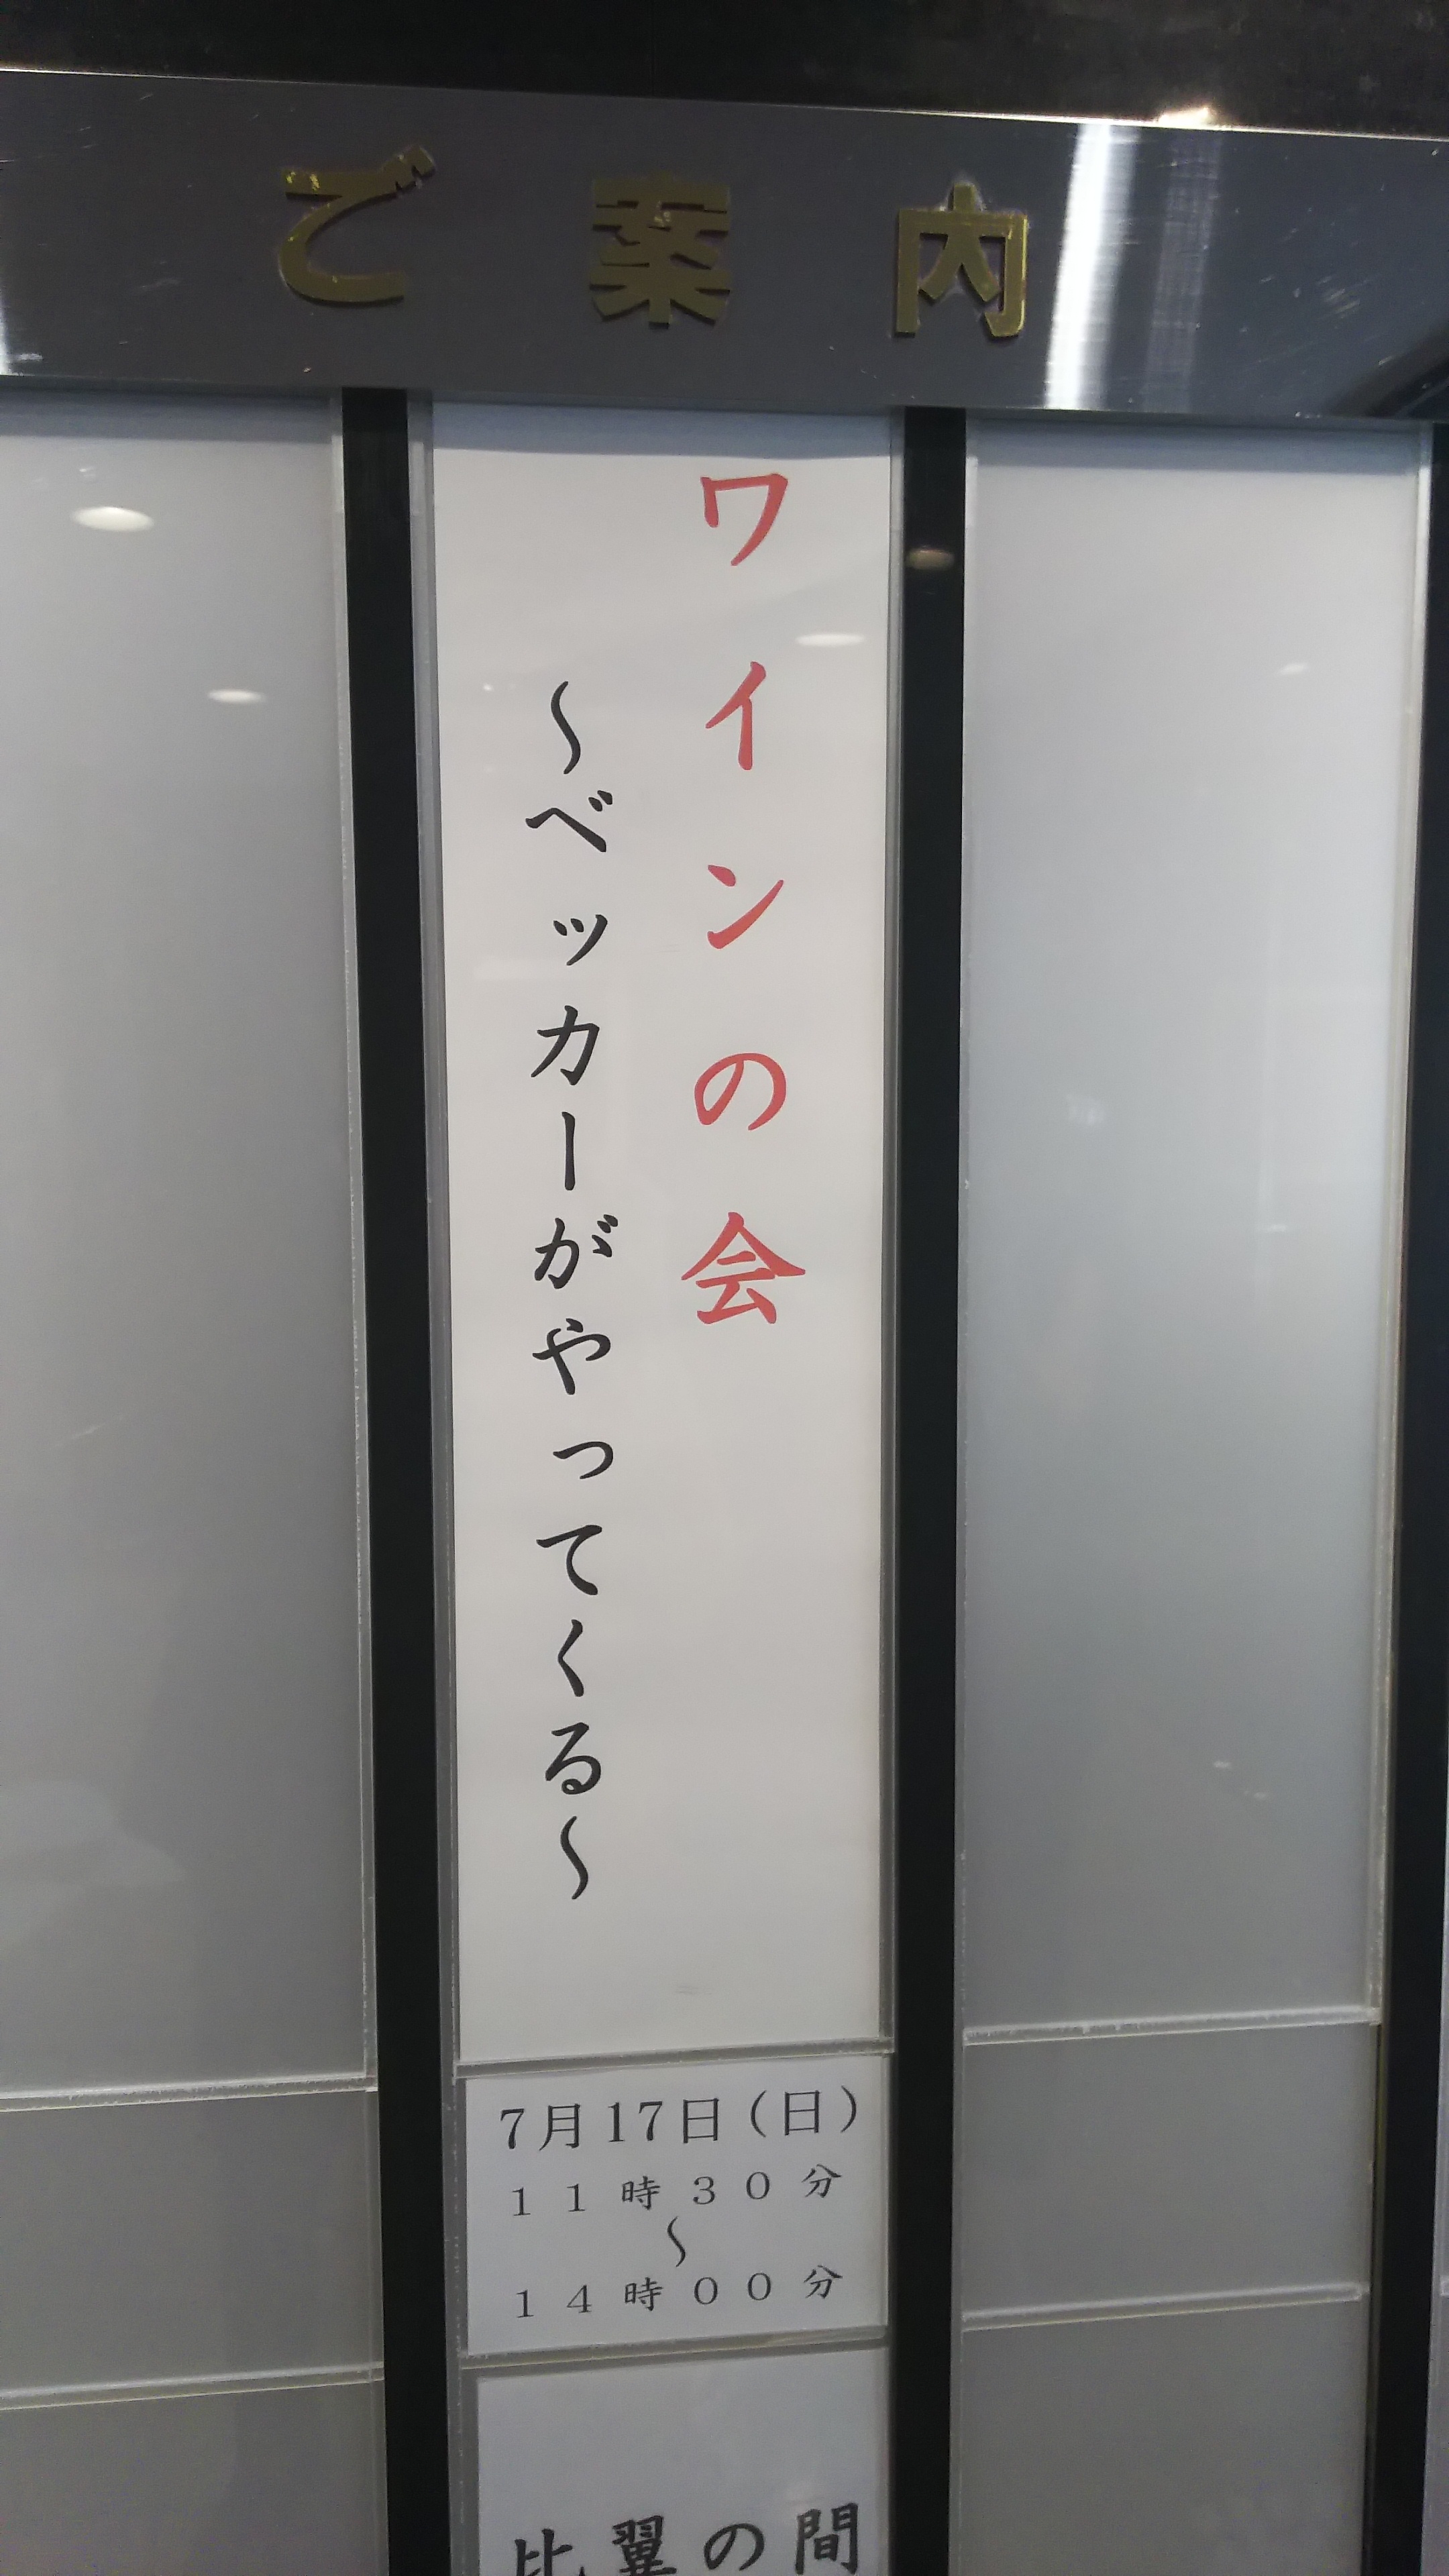 ご案内
ワインの会
～ベッカーがやってくる～
7月17日（日）
１１時３０分
～
１４時００分
比翼の間